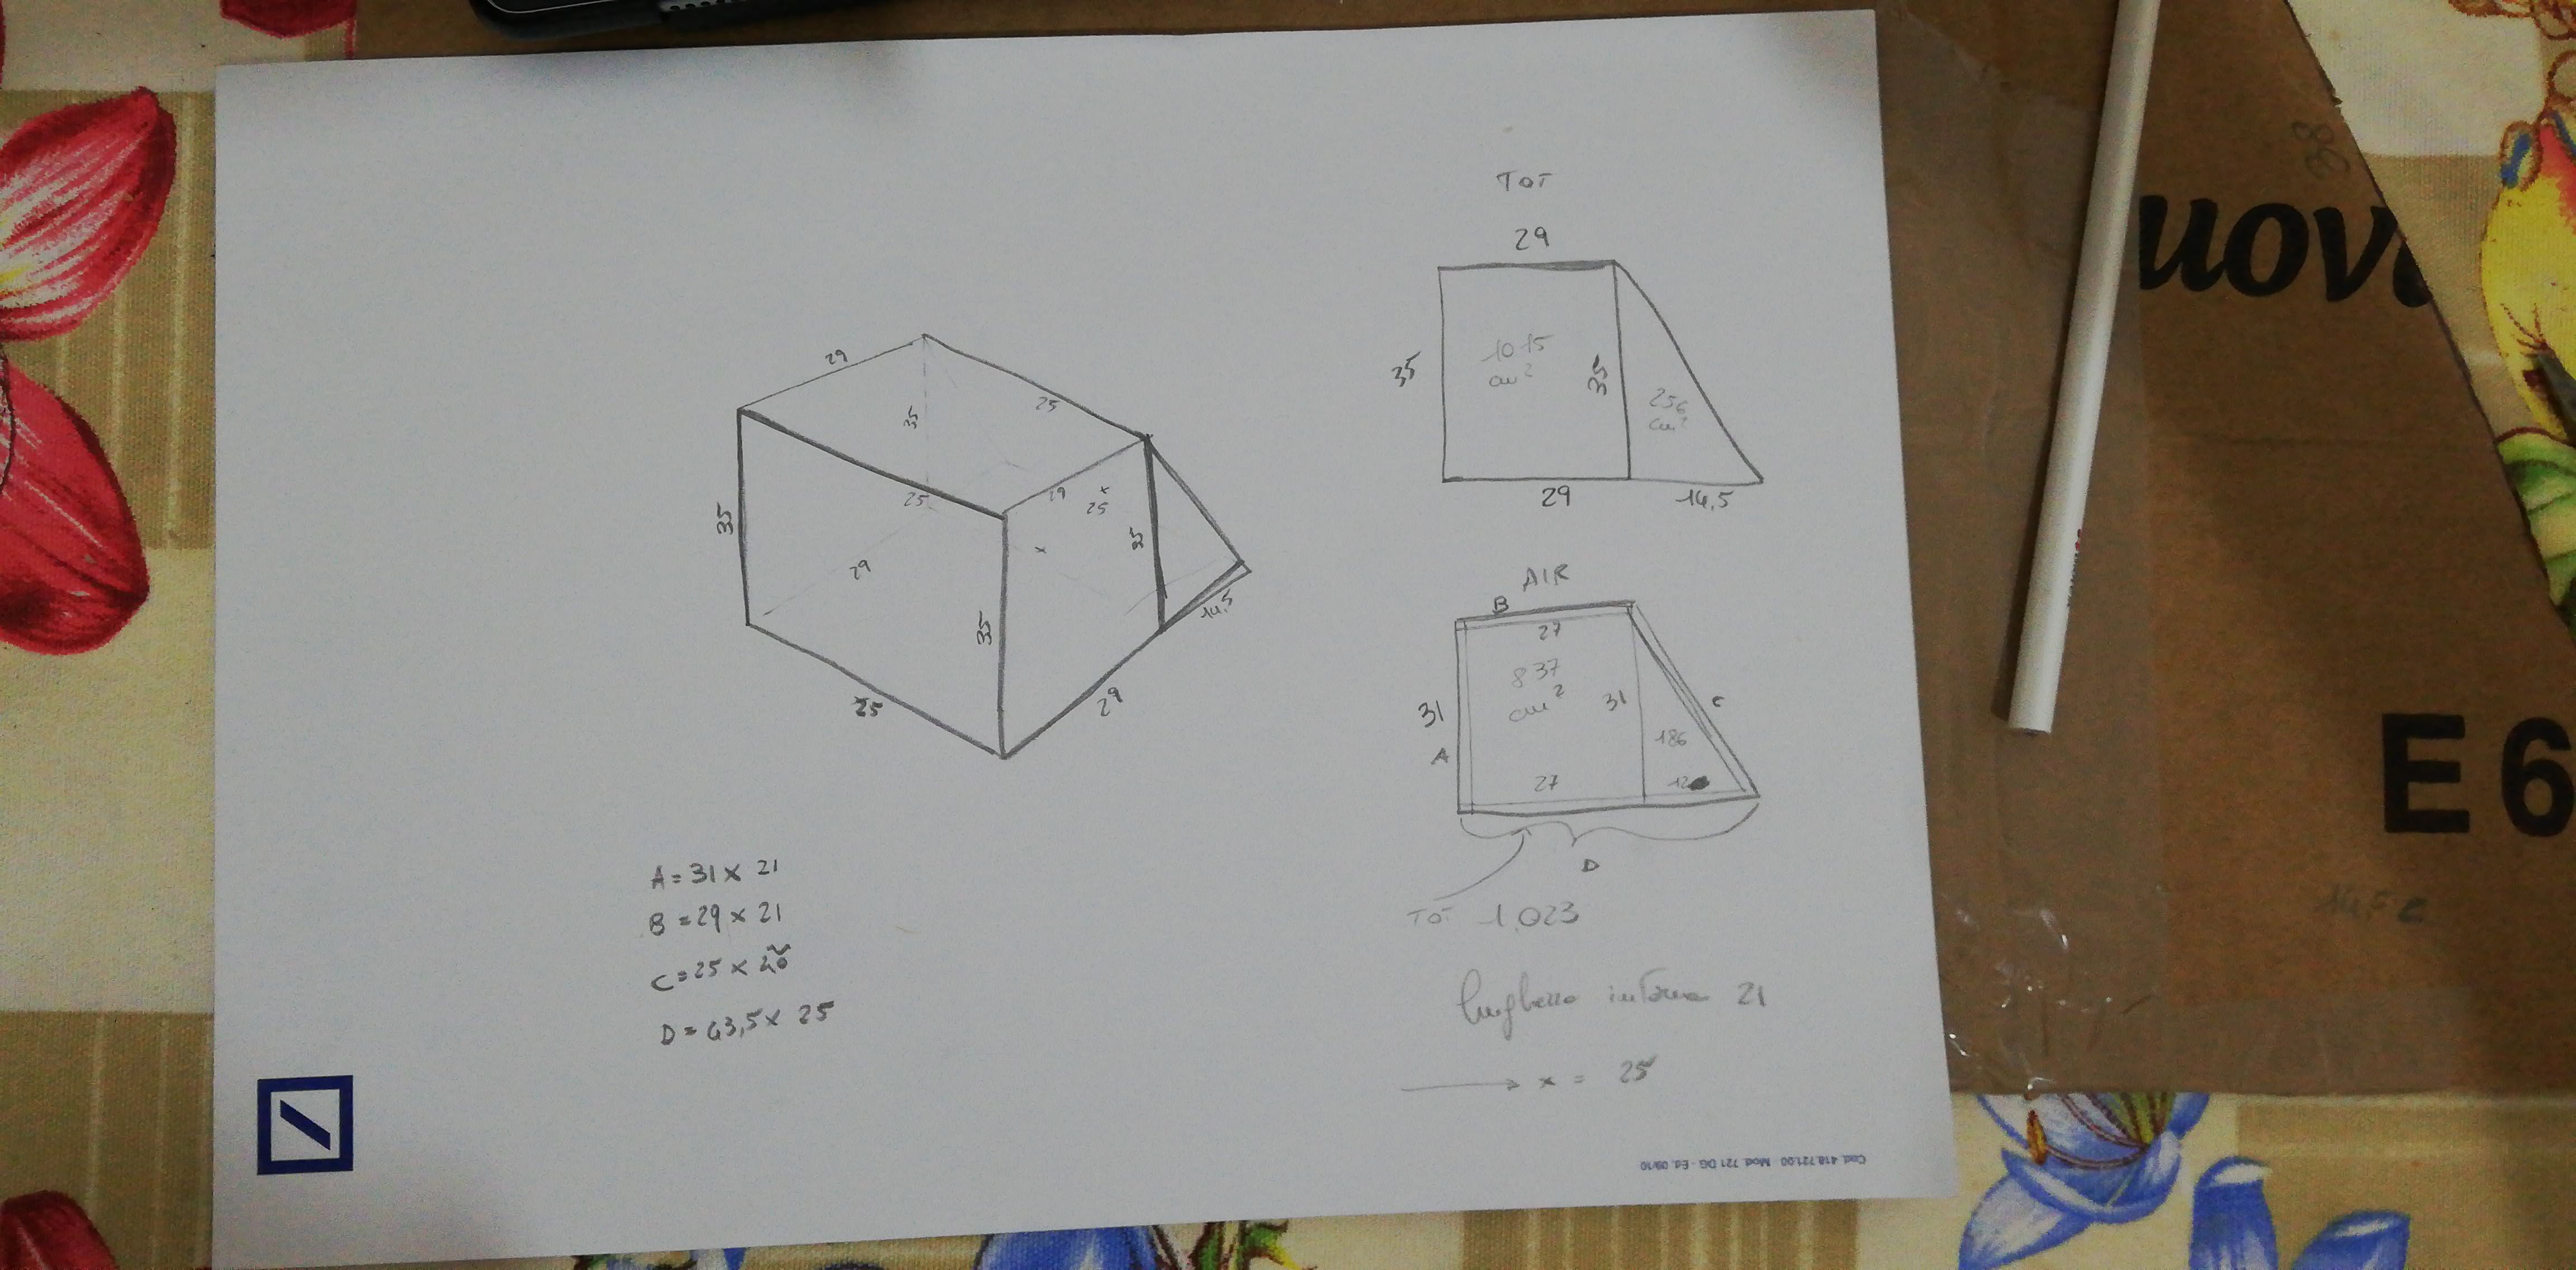 TOT
29
35
1015
cm²
35
256
cm²
29
14,5
29
25
35
25
29
x
25
35
35
29
35
x
14,5
25
29
AIR
B
27
837
cm²
31
31
C
A
186
27
12
D
TOT 1.023
A = 31 x 21
B = 29 x 21
D = 43,5 x 25
lunghezza interna 21
x = 25
Cod. 418.721.00 Mod. 721 DG - Ed. 09/10
38
uov
E 6
14,5